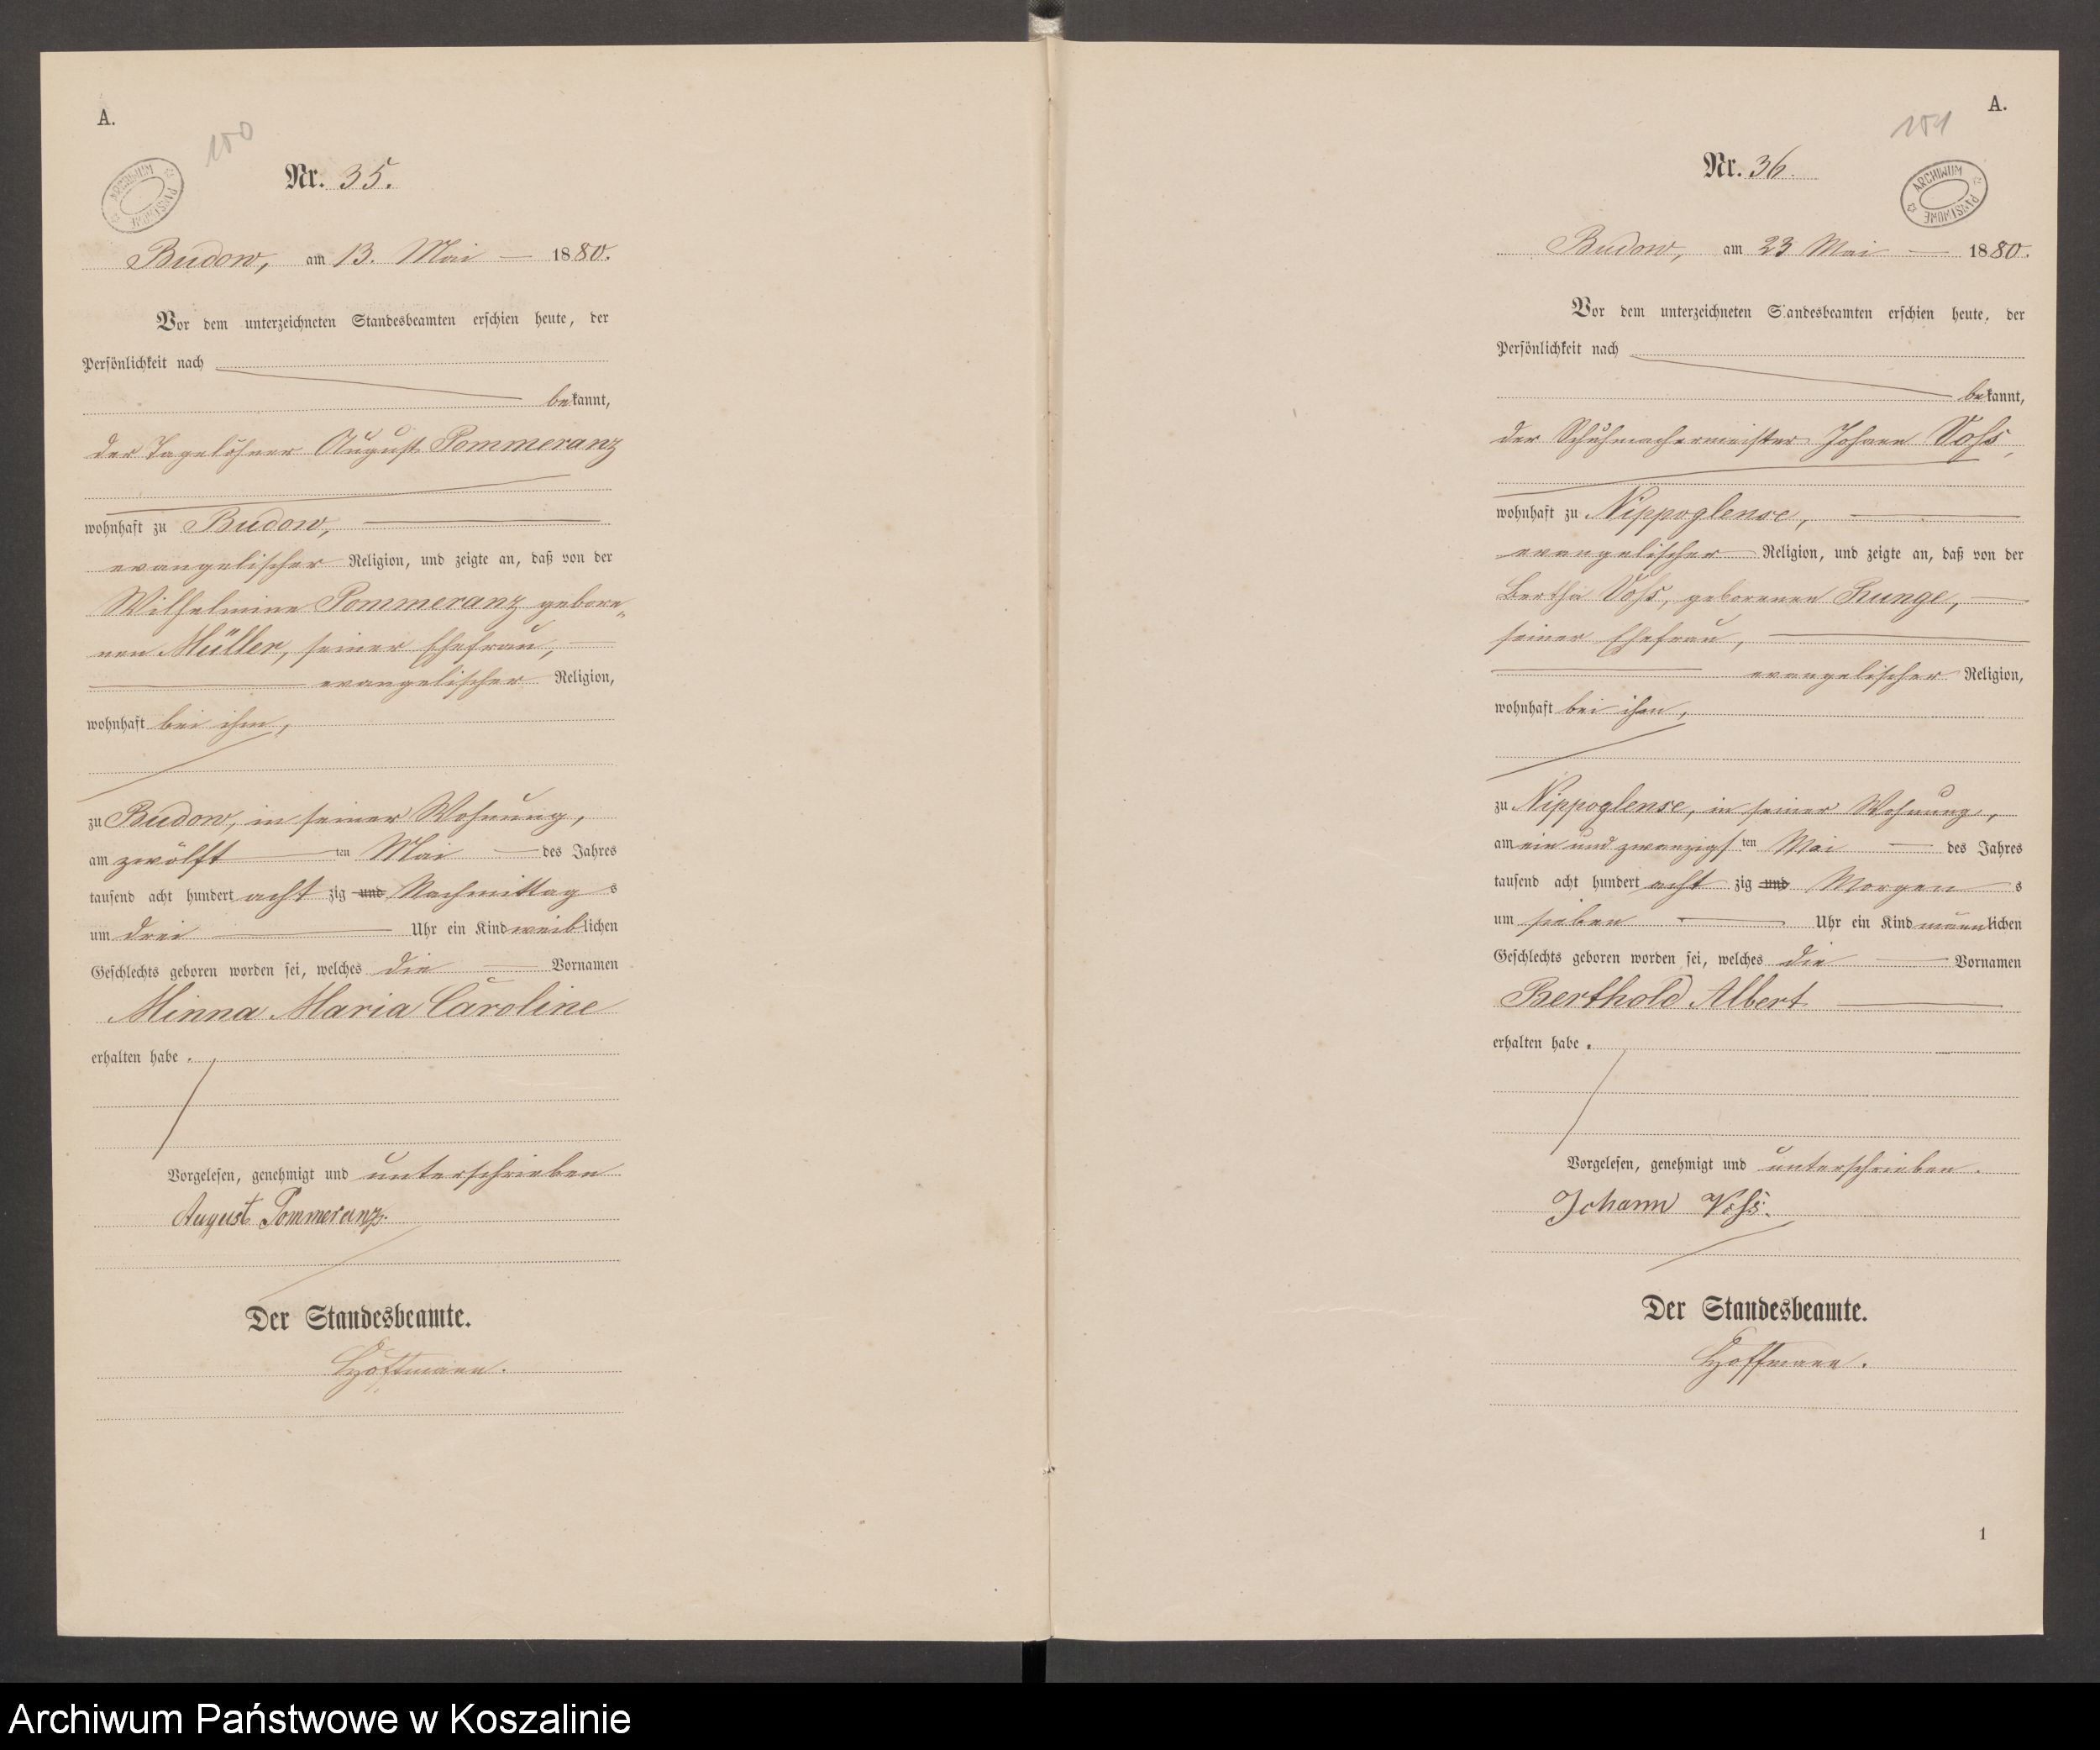 A.
100
ARCHIWUM PAŃSTWOWE
Nr. 35.
Budow, am 13. Mai 1880.
Vor dem unterzeichneten Standesbeamten erschien heute, der
Persönlichkeit nach
bekannt,
der Tagelöhner August Pommeranz
wohnhaft zu Budow,
evangelischer Religion, und zeigte an, daß von der
Wilhelmine Pommeranz gebore„
nen Müller, seiner Ehefrau,
evangelischer Religion,
wohnhaft bei ihm,
zu Budow, in seiner Wohnung,
am zwölften Mai des Jahres
tausend acht hundert achtzig und Nachmittags
um drei Uhr ein Kind weiblichen
Geschlechts geboren worden sei, welches die Vornamen
Minna Maria Caroline
erhalten habe.
Vorgelesen, genehmigt und unterschrieben
August Pommeranz.
Der Standesbeamte.
Hoffmann.
A.
101
ARCHIWUM PAŃSTWOWE
Nr. 36.
Budow, am 23 Mai 1880.
Vor dem unterzeichneten Standesbeamten erschien heute, der
Persönlichkeit nach
bekannt,
der Schuhmachermeister Johann Voß,
wohnhaft zu Nippoglense,
evangelischer Religion, und zeigte an, daß von der
Bertha Voß, geborenen Runge,
seiner Ehefrau,
evangelischer Religion,
wohnhaft bei ihm,
zu Nippoglense, in seiner Wohnung,
am ein und zwanzigsten Mai des Jahres
tausend acht hundert achtzig und Morgens
um sieben Uhr ein Kind männlichen
Geschlechts geboren worden sei, welches die Vornamen
Berthold Albert
erhalten habe.
Vorgelesen, genehmigt und unterschrieben.
Johann Voß.
Der Standesbeamte.
Hoffmann.
1
Archiwum Państwowe w Koszalinie